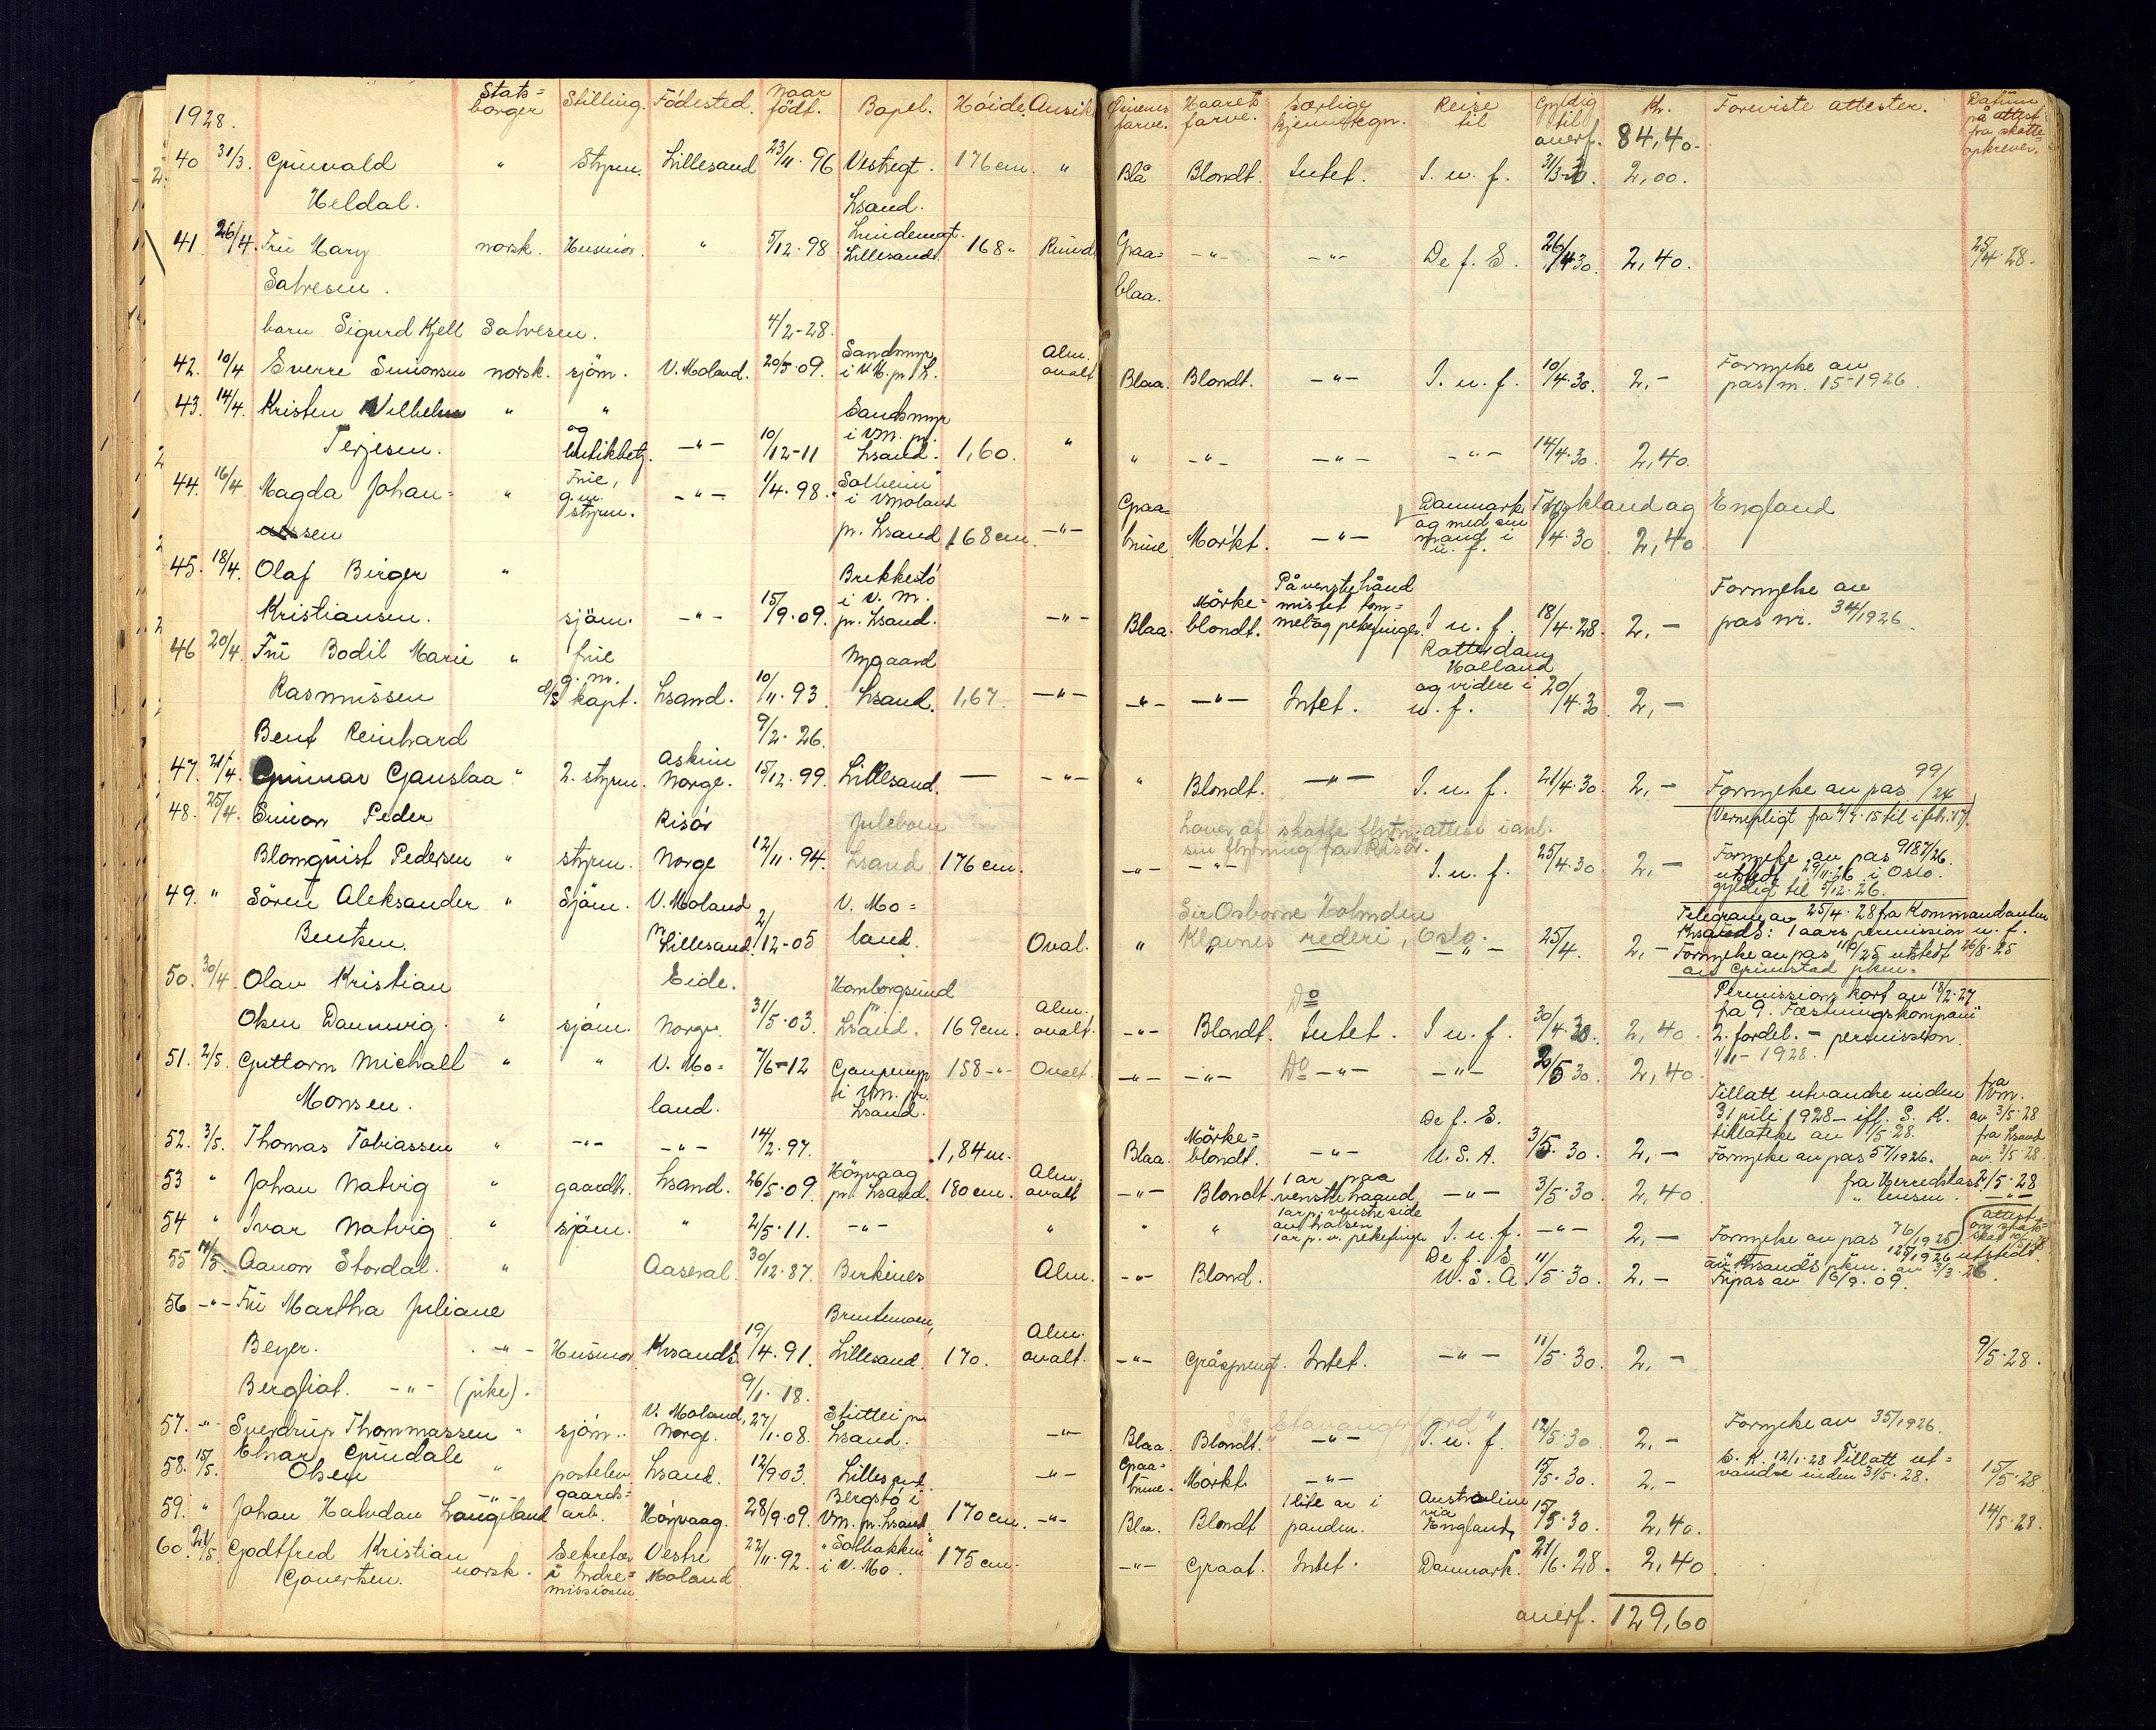 1928.
Stats= borger Stilling. Födested. Naar födt. Bopel. Höide. Ansikt
40 31/3. Grunvald " Styrm. Lillesand 23/11. 96 Vestregt. 176 cm. "
Heldal. Lsand.
41 26/4. Fru Mary norsk. Husmor. " 5/12. 98 Lillesand. 168 " Rund
Salvesen.
barn Sigurd Kjell Salvesen. 4/2-28.
42. 10/4 Sverre Simonsen norsk. sjöm. V. Moland. 20/5.09. Sandsmyr i V.M. pr. L. Alm. ovalt
43. 14/4. Kristen Vilhelm " " Sandsmyr
Terjesen. og butikkbetj. -"- 10/12-11 i VM. pr. Lsand. 1,60. "
44. 16/4. Magda Johan= " Frue, g.m. styrm. -"- 1/4.98. "Solheim" i VMoland
essen pr. Lsand 168 cm. -"-
45. 18/4. Olaf Birger " Brekkestö
Kristiansen. sjöm. -"- 15/9.09. i V. M. pr. Lsand. -"-
46 20/4. Fru Bodil Marie " frue Nygaard
Rasmussen g.m. d/s kapt. Lsand. 10/11.93. Lsand. 1,67. -"-
Bent Reinhard 9/2. 26.
47. 21/4. Gunnar Gauslaa " 2. styrm. Askim Norge. 15/12.99. Lillesand. — -"-
48. 25/4. Simon Peder Risör
Blomquist Pedersen " styrm. Norge 12/11.94. Lsand 176 cm.
49. " Sören Aleksander " Sjöm. V. Moland V. Mo=
Bentsen. pr Lillesand. 2/12-05 land. Oval.
50. 30/4. Olav Kristian Eide. Homborgsund
Olsen Dannevig. " sjöm. Norge. 31/5.03. pr. Lsand. 169 cm. Alm. ovalt.
51. 2/5. Guttorm Michall " " V. Mo= 7/6-12 Gaupemyr 158 -"- Ovalt.
Monsen. land. i VM. pr. Lsand.
52. 3/5. Thomas Tobiassen " -"- -"- 14/2.97. 1,84 m.
53 " Johan Natvig " gaardbr. Lsand. 26/5.09. Högvaag pr. Lsand. 180 cm. Alm. ovalt
54 " Ivar Natvig " sjöm. " 2/5.11. -"- "
55 11/5. Aanon Stordal. " Aaseral. 30/12.87. Birkenes Alm.
56 -"- Fru Martha Juliane
Beyer. -"- Husmor Krsands. 19/4.91. Lillesand. 170. Alm. ovalt.
Bergliot. -"- (pike). 9/1. 18.
57. -"- Sverdrup Thommassen " sjöm. V. Moland, Norge. 27/1.08. Lsand. -"-
58. 15/5. Einar Grundale
Olsen " postelev. Lsand. 12/9.03. Lillesand. -"-
59. " Johan Halvdan Langeland " gaards= arb. Högvaag. 28/9.09. Bergstö i VM. pr. Lsand. 170 cm. -"-
60. 21/5 Godtfred Kristian
Govertsen. norsk. Sekretær i Indre= missionen. Vestre Moland 22/11.92. "Solbakken" i V. Mo. 175 cm.
Öinenes farve. Haarets farve. Særlige kjennetegn. Reise til Gyldig til Kr. Foreviste attester. Datum på attest fra skatte= opkrever.
overf. 84,40.
Blå Blondt. Intet. I. u. f. 31/3-30. 2,00.
Graa= blaa. -"- -"- De f. S. 26/4.30. 2,40. 25/4.28.
Blaa. Blondt. -"- I. u. f. 10/4.30. 2,- Fornyelse av pas m. 15-1926.
" -"- -"- -"- 14/4.30. 2,40.
Graa= brune Mörkt. -"- Danmark, Tyskland og England
og med sin mand i u. f. 16/4.30 2,40
Blaa. Mörke= blondt. På venstre hånd mistet tom= mel og pekefinger. I u. f. 18/4.28. 2,- Fornyelse av pas nr. 34/1926.
-"- -"- Intet. Rotterdam, Holland og videre i u. f. 20/4.30. 2,-
" Blondt. -"- I. u. f. 21/4.30. 2,- Fornyelse av pas 99/24
(Vernepligt fra
Lover at skaffe flytn. attest i anl. sin flytning fra Risör.
-"- -"- I. u. f. 25/4.30 2,- Fornyelse av pas 9187/26. utstedt 29/11.26 i Oslo. gyldig til 5/12.26.
Sir Osborne Holmden
" " Klavnes rederi, Oslo. -"- 25/4. 2,- Telegram av 25/4.28 fra Kommandanten Krsands: 1 aars permission u. f.
Fornyelse av pas 110/25 utstedt 26/8.25 av Grimstad pkm.
Do
-"- Blondt. Intet. I u. f. 30/4.30. 2,40. Permissions kort av 18/2.27 fra 9. Festningskompani 2. fordel. - permission 1/11-1928.
-"- -"- Do -"- -"- 20/5.30. 2,40.
Blaa. Mörke= blondt. -"- De f. S. U. S. A. 3/5.30. 2,- Tillatt utvandre inden 31 juli 1928 - iff. S. K. tillatelse av 1/5.28. Fornyelse av pas 57/1926. fra Vm. av 3/5.28 fra Lsand av 3/5.28.
-"- Blondt 1 ar paa venstre haand -"- 3/5.30. 2,40. fra Herredskass. 2/5.28
" " 1 ar p. venstre side av halsen 1 ar p. v. pekefinger I. u. f. -"- 2,- Fornyelse av pas 76/1925
-"- Blond. De f. S U. S. A. 11/5.30. 2,- av Krsands pkm. av 3/3.26. Fripas av 6/9.09.
-"- Gråsprengt. Intet. -"- 11/5.30. 2,- 9/5.28.
S/S "Stavangerfjord"
Blaa. Blondt. -"- I. u. f. 12/5.30 2,- Fornyelse av 35/1926.
Graa= brune. Mörkt. -"- 15/5.30. 2,- S. K. 12/1.28 Tillatt ut= vandre inden 31/5.28. 15/5.28
Blaa. Blondt 1 lite ar i panden. Australien via England, 15/5.30. 2,40. 14/5.28.
-"- Graat. Intet. Danmark. 21/6.28. 2,40.
overf. 129,60